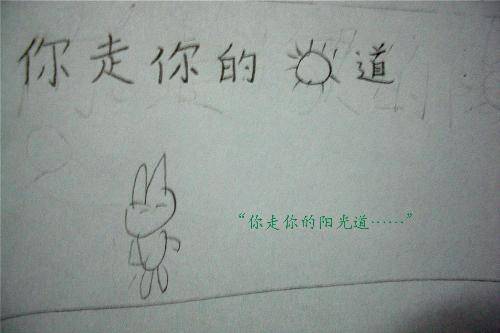 你走你的☀道
“你走你的阳光道……”